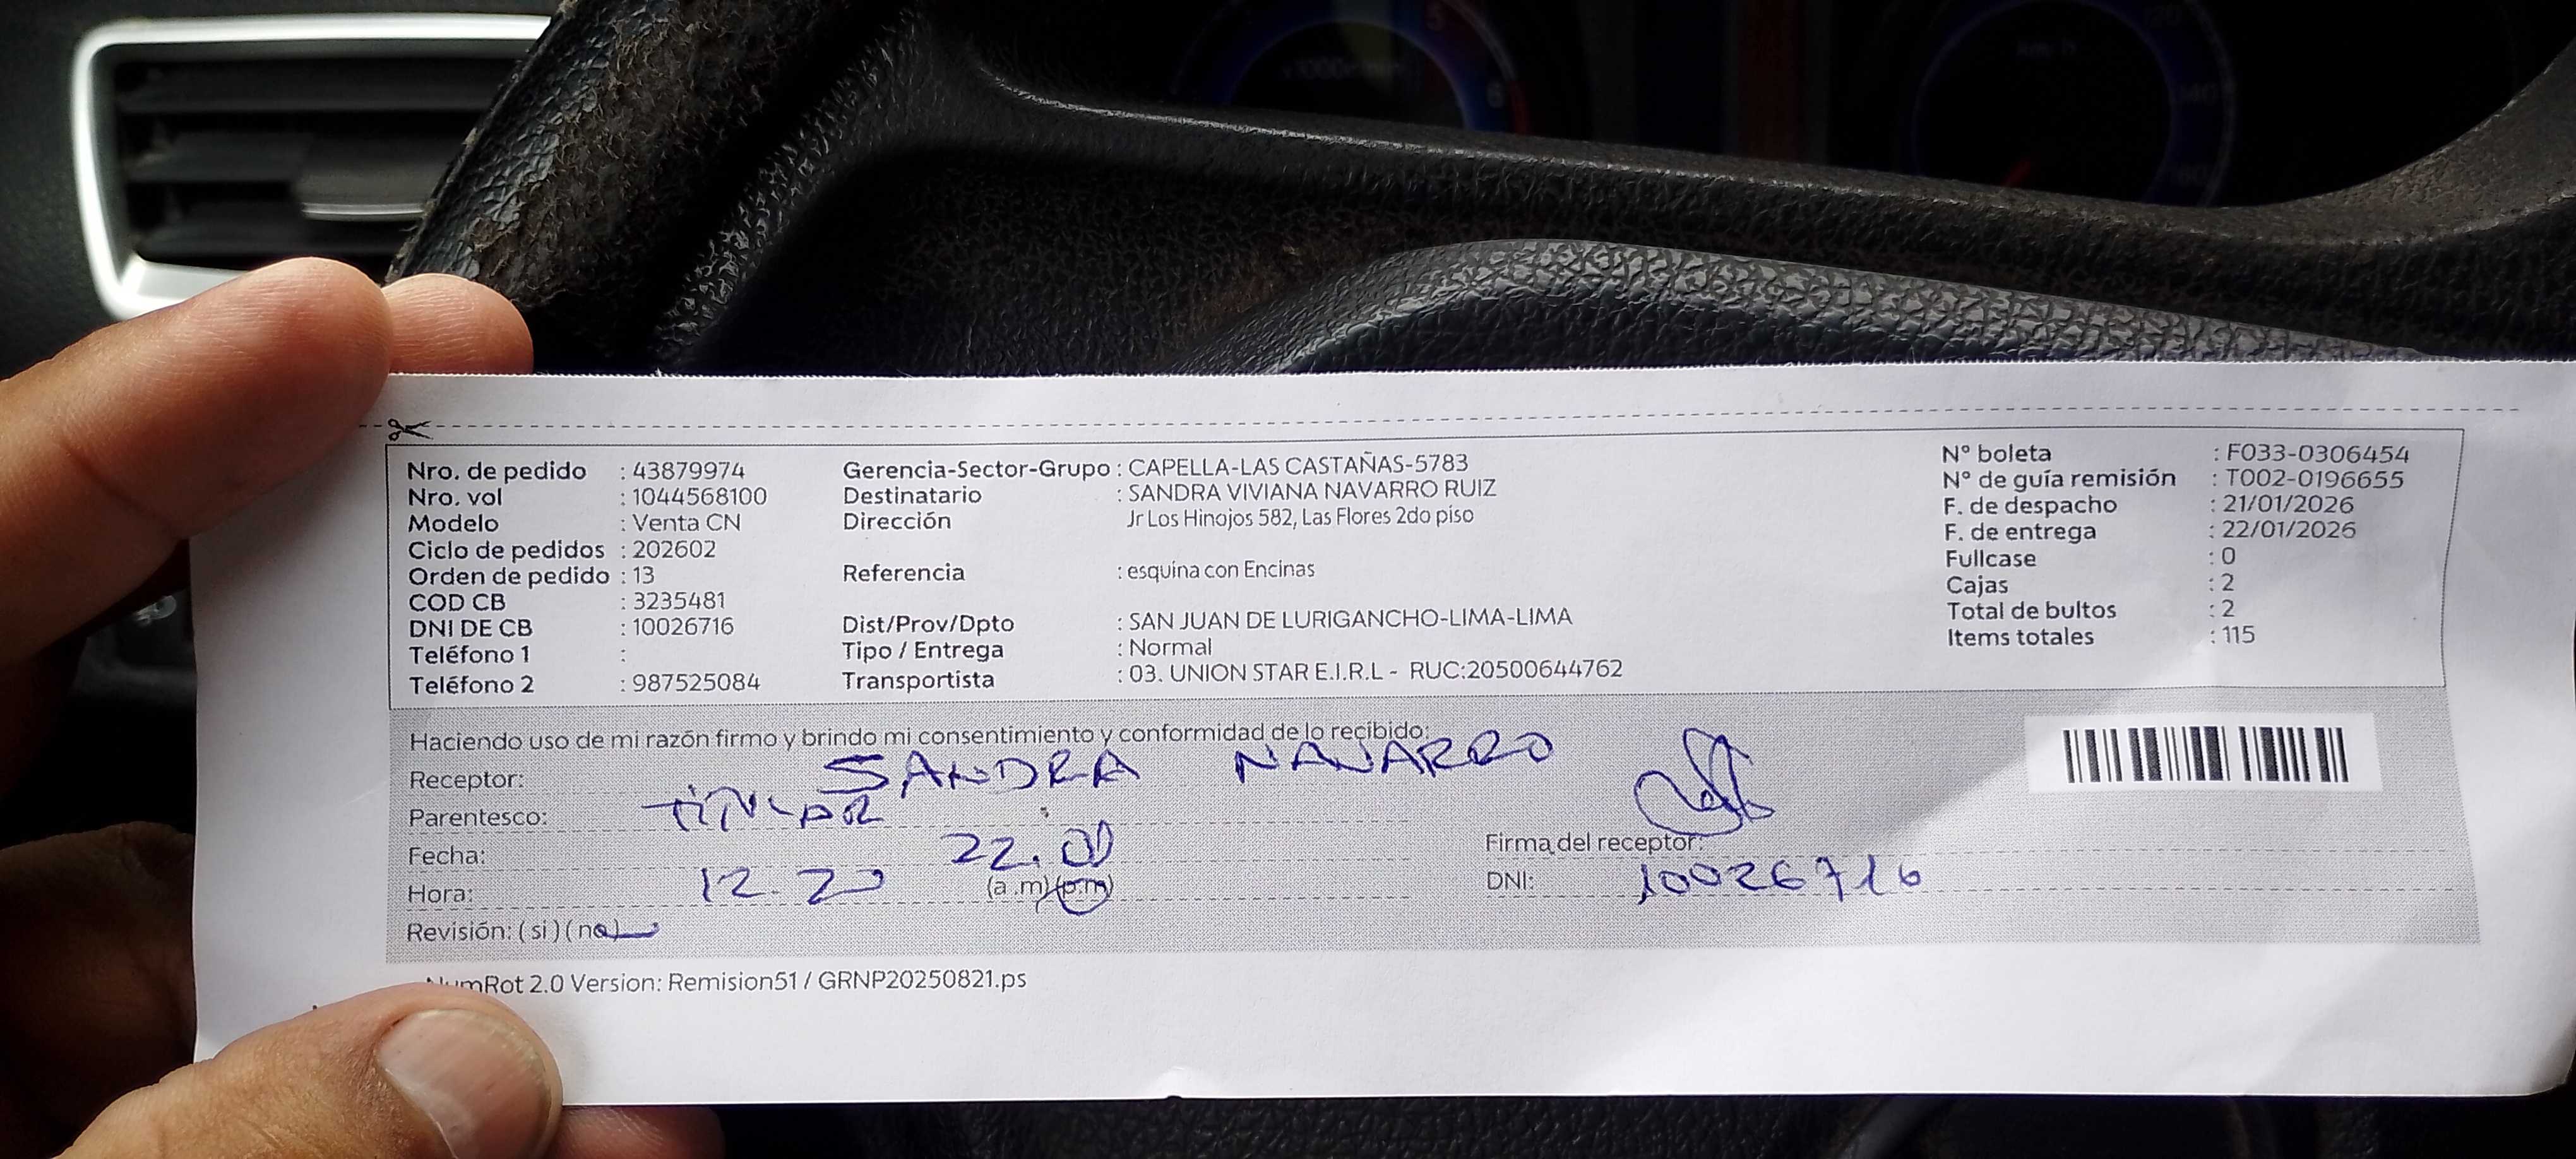 Nro. de pedido : 43879974
Nro. vol : 1044568100
Modelo : Venta CN
Ciclo de pedidos : 202602
Orden de pedido : 13
COD CB : 3235481
DNI DE CB : 10026716
Teléfono 1 :
Teléfono 2 : 987525084
Gerencia-Sector-Grupo : CAPELLA-LAS CASTAÑAS-5783
Destinatario : SANDRA VIVIANA NAVARRO RUIZ
Dirección Jr Los Hinojos 582, Las Flores 2do piso
Referencia : esquina con Encinas
Dist/Prov/Dpto : SAN JUAN DE LURIGANCHO-LIMA-LIMA
Tipo / Entrega : Normal
Transportista : 03. UNION STAR E.I.R.L - RUC:20500644762
N° boleta : F033-0306454
N° de guía remisión : T002-0196655
F. de despacho : 21/01/2026
F. de entrega : 22/01/2026
Fullcase : 0
Cajas : 2
Total de bultos : 2
Items totales : 115
Haciendo uso de mi razón firmo y brindo mi consentimiento y conformidad de lo recibido:
Receptor: SANDRA NAVARRO
Parentesco: TITULAR
Fecha: 22.01
Hora: 12.20 (a.m) (p.m)
Revisión: (si) (no)
Firma del receptor:
DNI: 10026716
NumRot 2.0 Version: Remision51 / GRNP20250821.ps